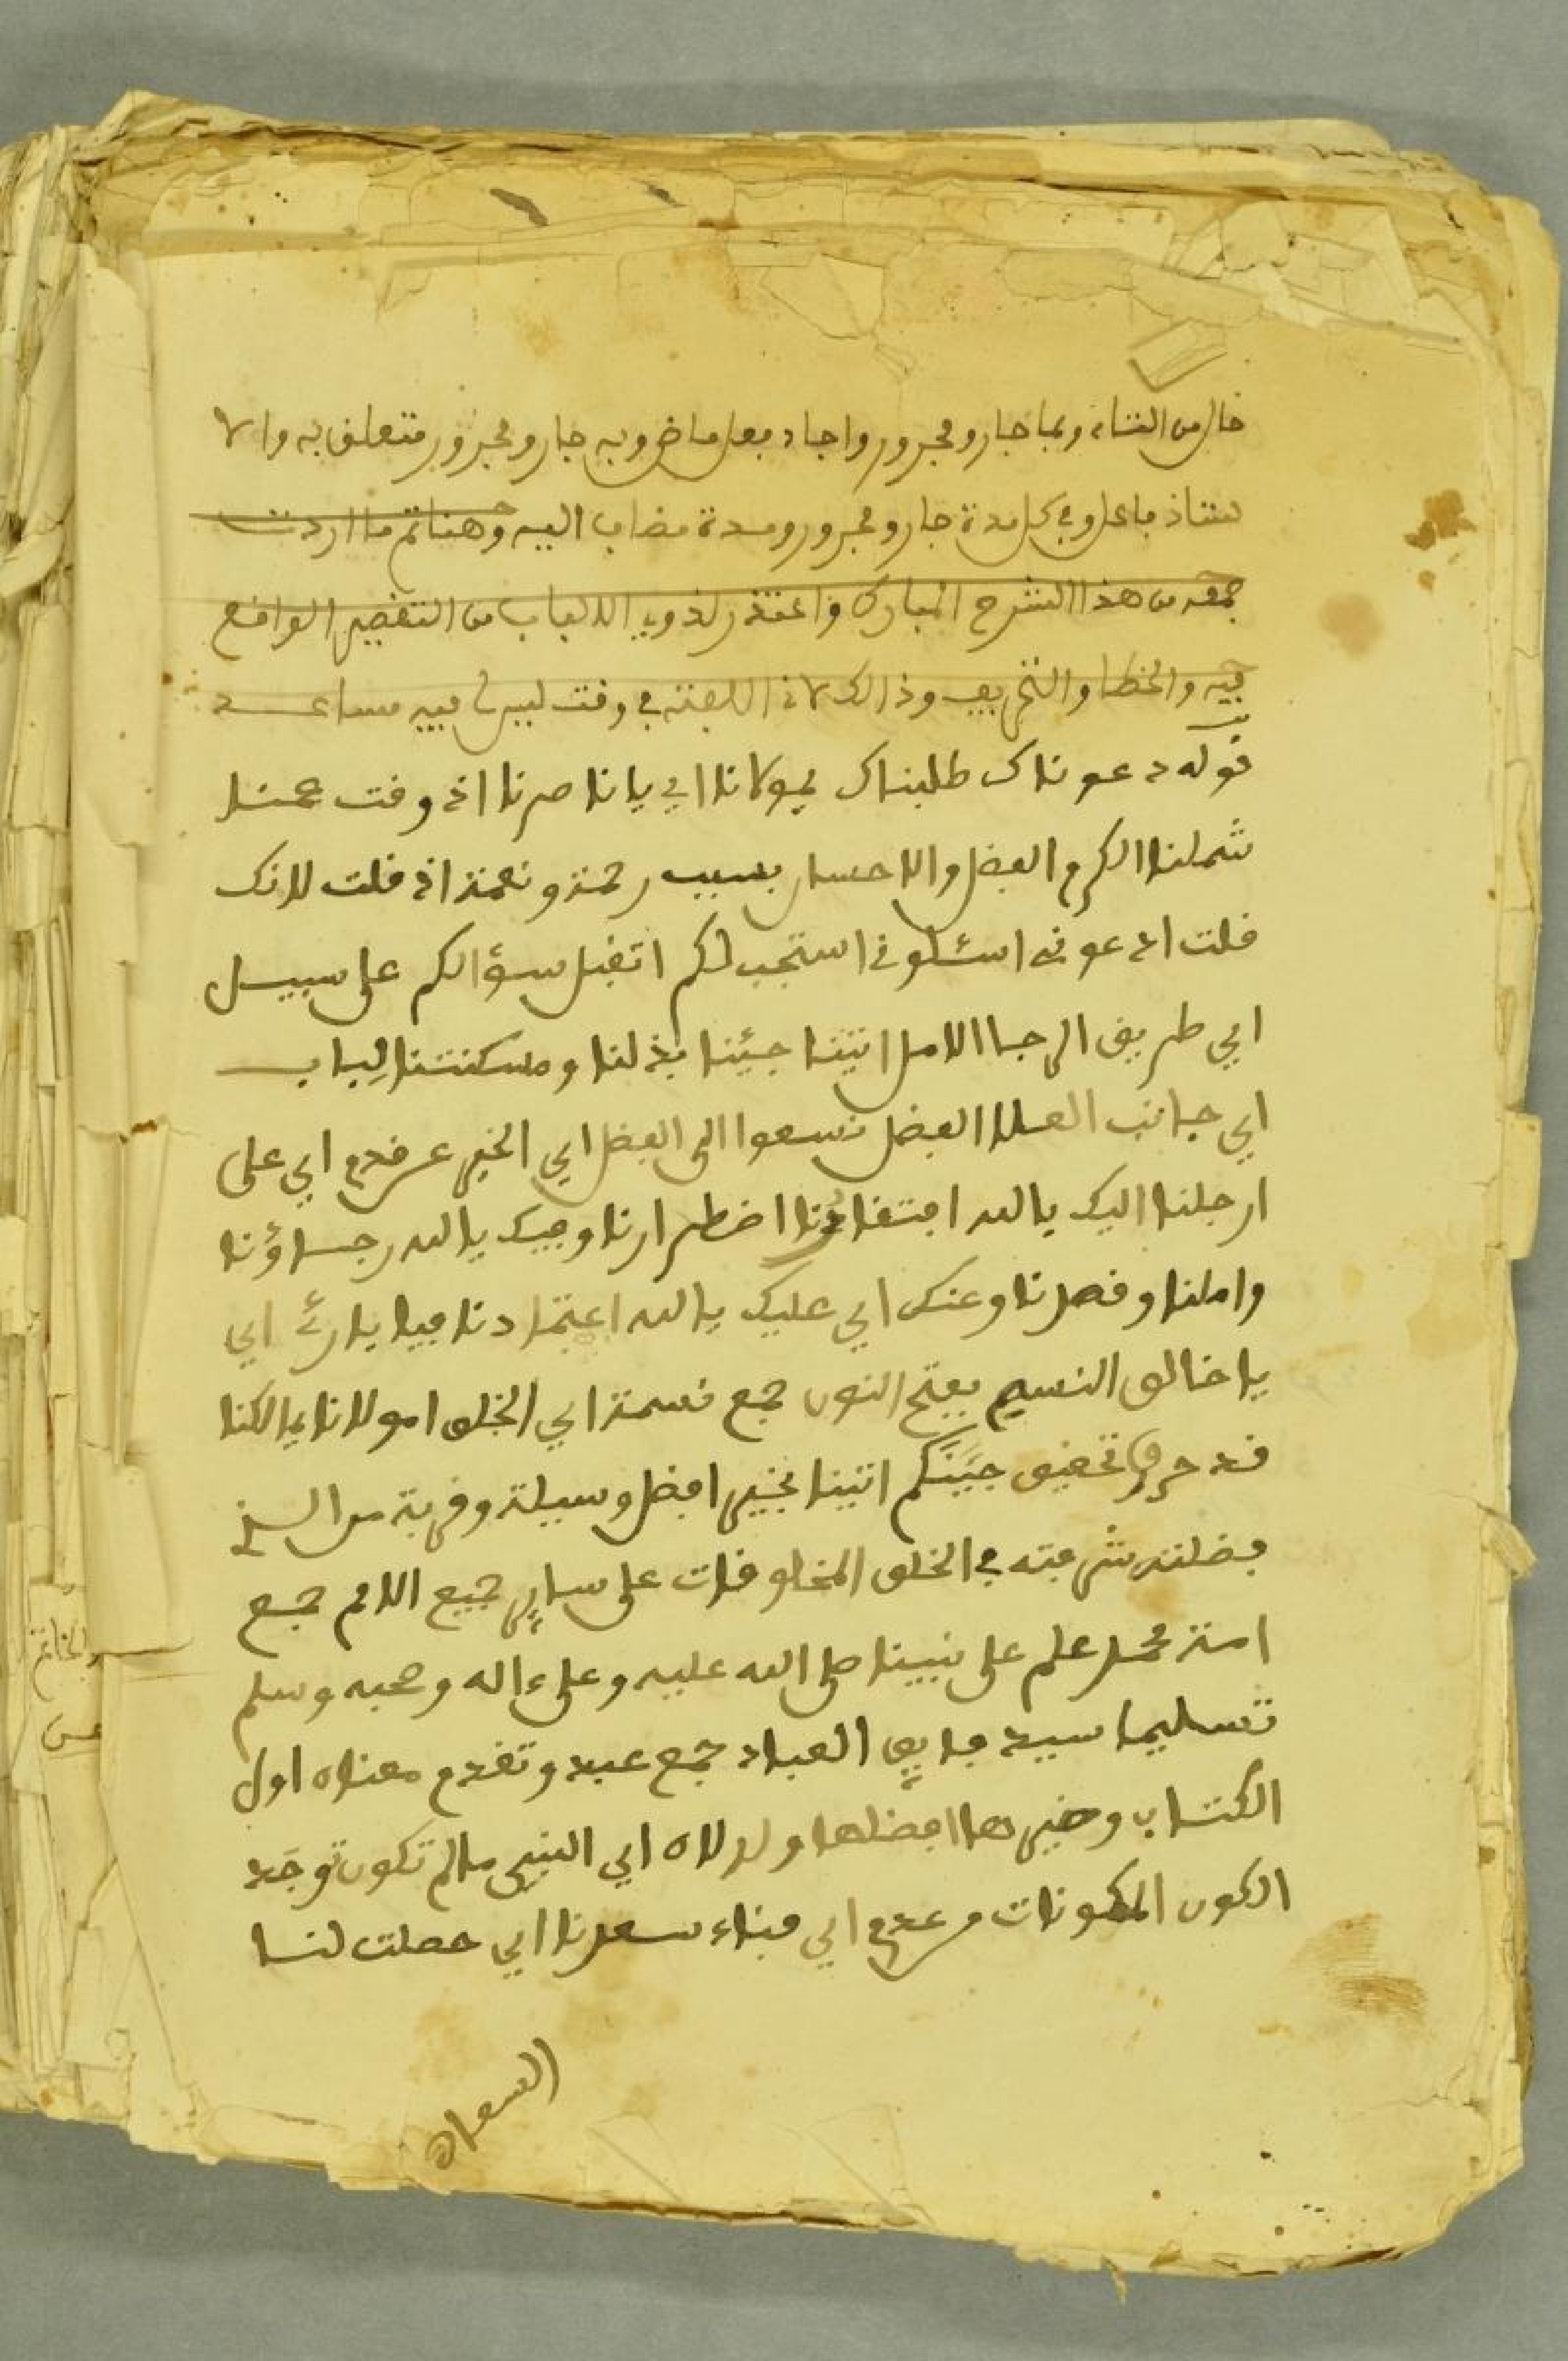 حال من الثناء وبما جار ومجرور واجاد فعل ماض وبه جار ومجرور متعلق به والا
ستاذ فاعل وفي كل مدة جار ومجرور ومدة مضاف اليه وهنا تم ما اردت
جمعه من هذا الشرح المبارك واعتذر لذوي الالباب من التقصير الواقع
فيه والخطا والتحريف وذالك لانى اللفته في وقت ليس لي فيه مساعد
قوله دعوناك طلبناك يمولانا اي يا ناصرنا اذ وقت عمنا
شملنا الكرم الفضل والاحسان بسبب رحمة ونعمة اذ قلت لانك
قلت ادعوني اسئلوني استجب لكم اتقبل سؤالكم على سبيل
اي طريق الرجا الامل اتينا جيئنا بذلنا ومسكنتنا لباب
اي جانب العلا الفضل نسعوا الى الفضل اي الخير عن قدم اي على
ارجلنا اليك يالله افتقارنا اضطرارنا وفيك يالله رجاؤنا
واملنا وقصدنا وعنك اي عليك يالله اعتمادنا فيا بارئ اي
يا خالق النسيم بفتح النون جمع نسمة اي الخلق امولانا يمالكنا
قد حرف تحقيق جيناكم اتينا بخير افضل وسيلة وقربة من الذي
فضلته شرفته في الخلق المخلوقات على ساير جميع الامم جمع
امة محمد علم على نبينا صلى الله عليه وعلى ءاله وصحبه وسلم
تسليما سيد فايق العباد جمع عبد وتقدم معناه اول
الكتاب وخيرها افضلها ولولاه اي النبي مالم تكون توجد
الكون المكونات من عدم اي فناء سعدنا اي حصلت لنا
السعادة